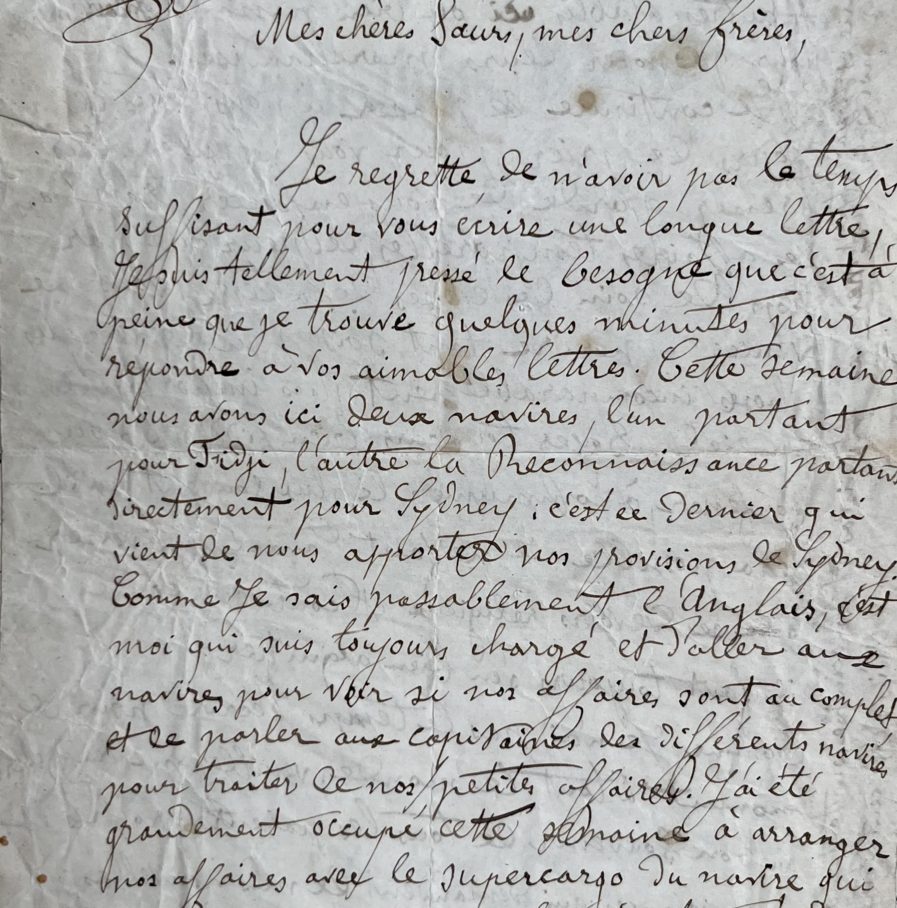 Mes chères Sœurs, mes chers frères,
Je regrette de n'avoir pas le temps
suffisant pour vous écrire une longue lettre,
Je suis tellement pressé de besogne que c'est à
peine que je trouve quelques minutes pour
répondre à vos aimables lettres. Cette semaine
nous avons ici deux navires, l'un partant
pour Fidji, l'autre la Reconnaissance partant
directement pour Sydney ; c'est ce dernier qui
vient de nous apporter nos provisions de Sydney.
Comme Je sais passablement l'Anglais, c'est
moi qui suis toujours chargé et d'aller aux
navires pour voir si nos affaires sont au complet
et de parler aux capitaines des différents navires
pour traiter de nos petites affaires. J'ai été
grandement occupé cette semaine à arranger
nos affaires avec le supercargo du navire qui